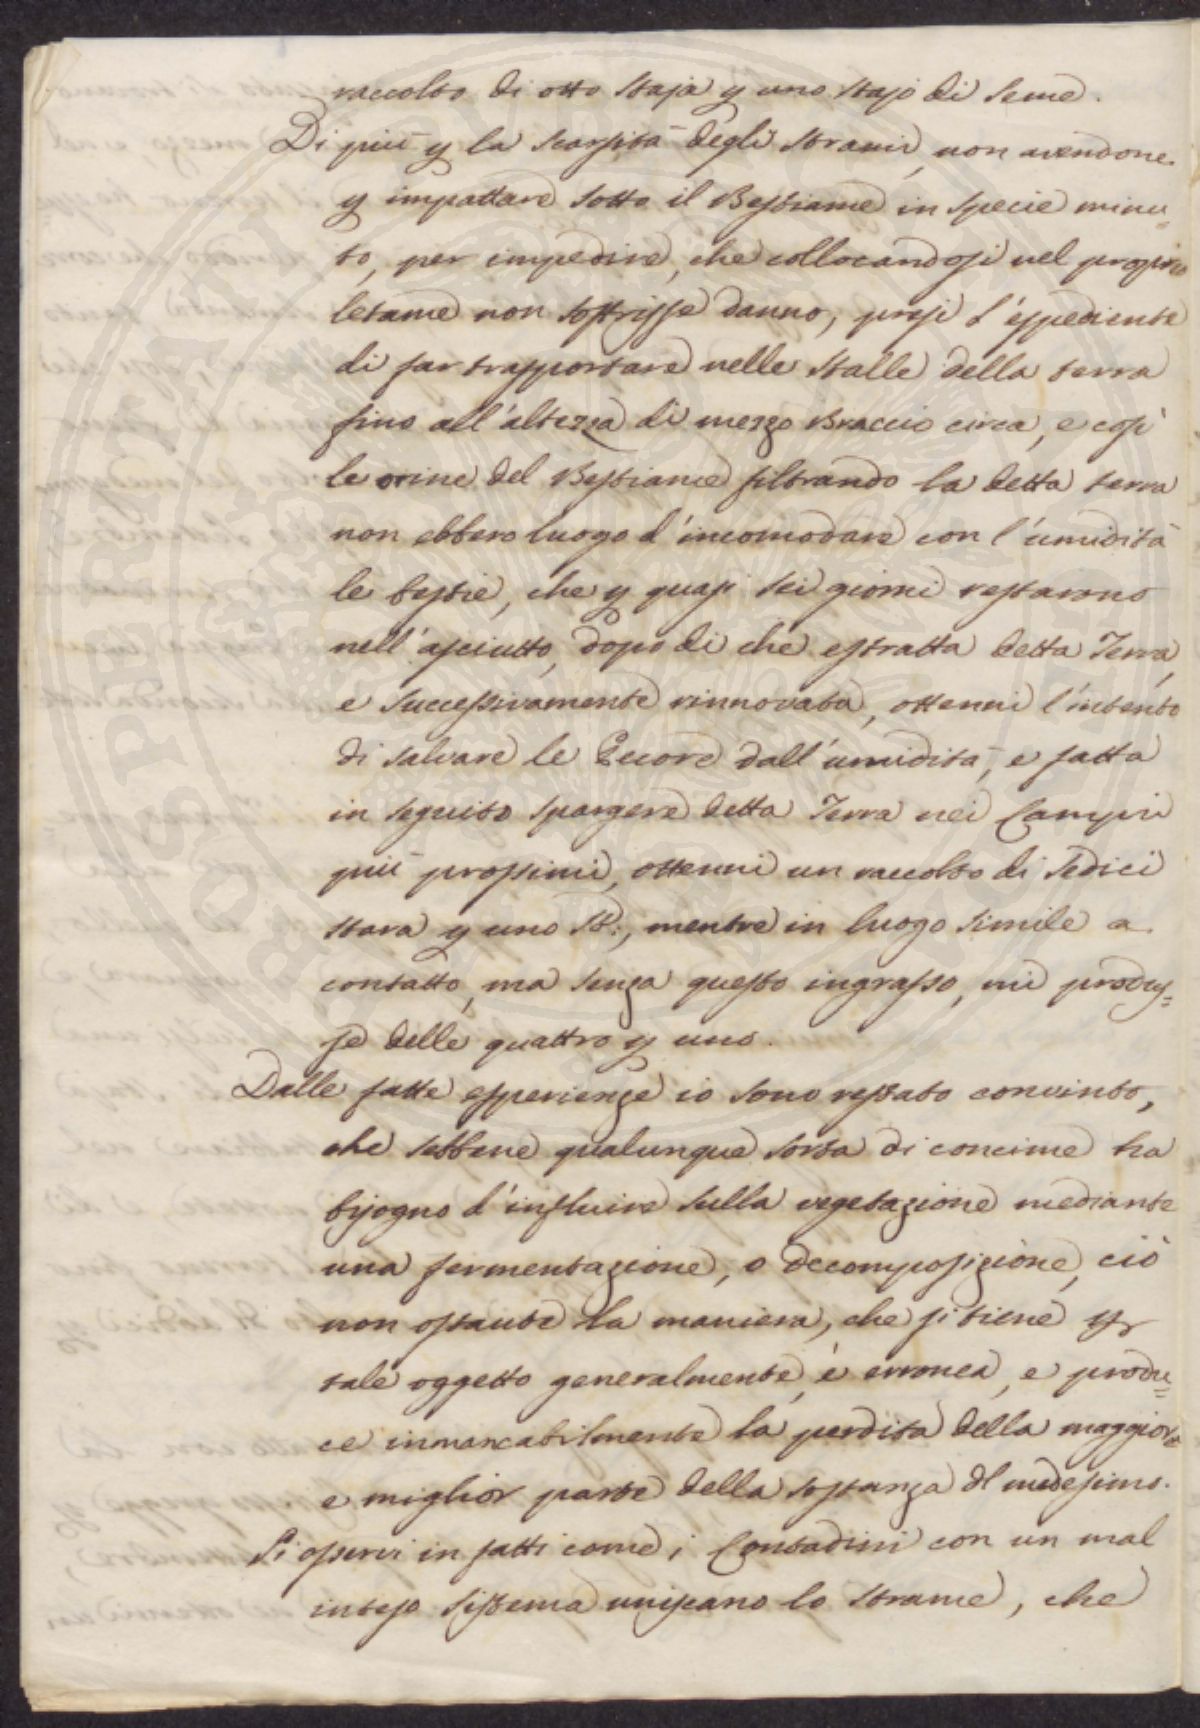 raccolto di otto Staja p uno Stajo di Seme.
Di più p la Scarsità degli Strami, non avendone
p impattare sotto il Bestiame in specie minu=
to, per impedire, che collocandosi nel proprio
letame non soffrisse danno, presi l'espediente
di far trasportare nelle Stalle della terra
fino all'altezza di mezzo Braccio circa, e così
le orine del Bestiame filtrando la detta terra
non ebbero luogo d'incomodare con l'umidità
le bestie, che p quasi sei giorni restarono
nell'asciutto, dopo di che estratta detta Terra,
e successivamente rinnovata, ottenni l'intento
di salvare le Pecore dall'umidità, e fatta
in seguito spargere detta Terra nei Campi
più prossimi, ottenni un raccolto di Sedici
stara p uno St:, mentre in luogo simile a
contatto, ma senza questo ingrasso, mi produs=
se delle quattro p uno.
Dalle fatte esperienze io sono restato convinto,
che sebbene qualunque sorta di concime ha
bisogno d'influire sulla vegetazione mediante
una fermentazione, o decomposizione, ciò
non ostante la maniera, che si tiene pr
tale oggetto generalmente, è erronea, e produ=
ce inmancabilmente la perdita della maggiore
e miglior parte della sostanza dl medesimo.
Si osservi in fatti come i Contadini con un mal
inteso sistema uniscano lo Strame, che
PROSPERITATI PUBLICAE AUGENDAE